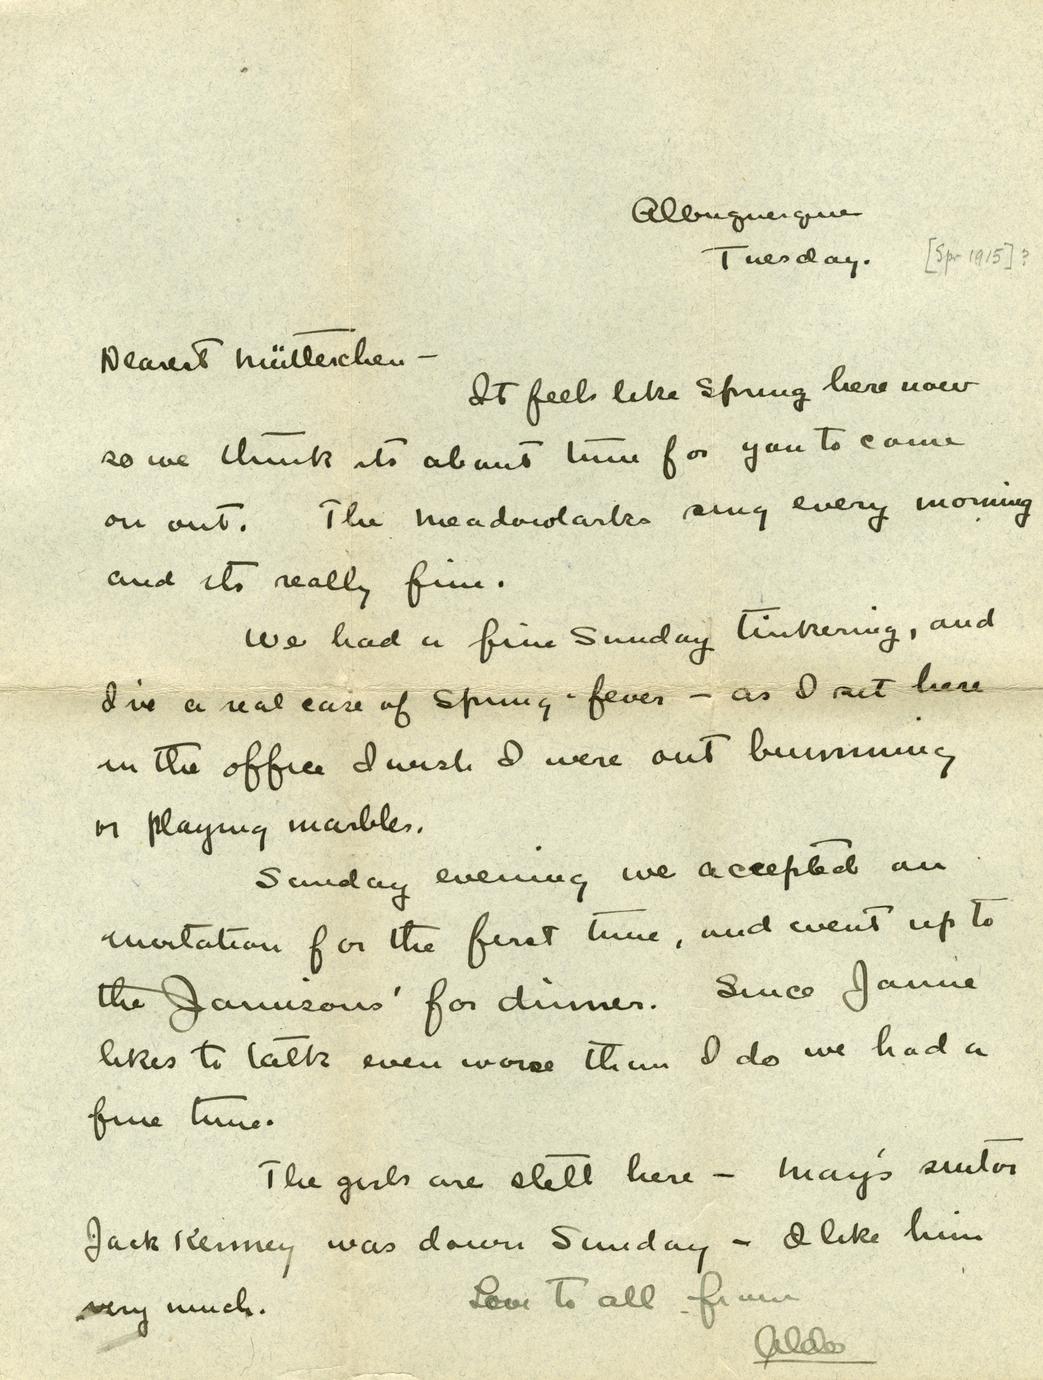 Albuquerque
Tuesday. [Spr 1915]?
Dearest Mütterchen —
It feels like Spring here now
so we think its about time for you to come
on out. The meadowlarks sing every morning
and its really fine.
We had a fine Sunday tinkering, and
I've a real case of Spring-fever — as I sit here
in the office I wish I were out bumming
or playing marbles.
Sunday evening we accepted an
invitation for the first time, and went up to
the Jamisons' for dinner. Since Jamie
likes to talk even worse than I do we had a
fine time.
The girls are still here — May's suitor
Jack Kenney was down Sunday — I like him
very much. Love to all from
Aldo